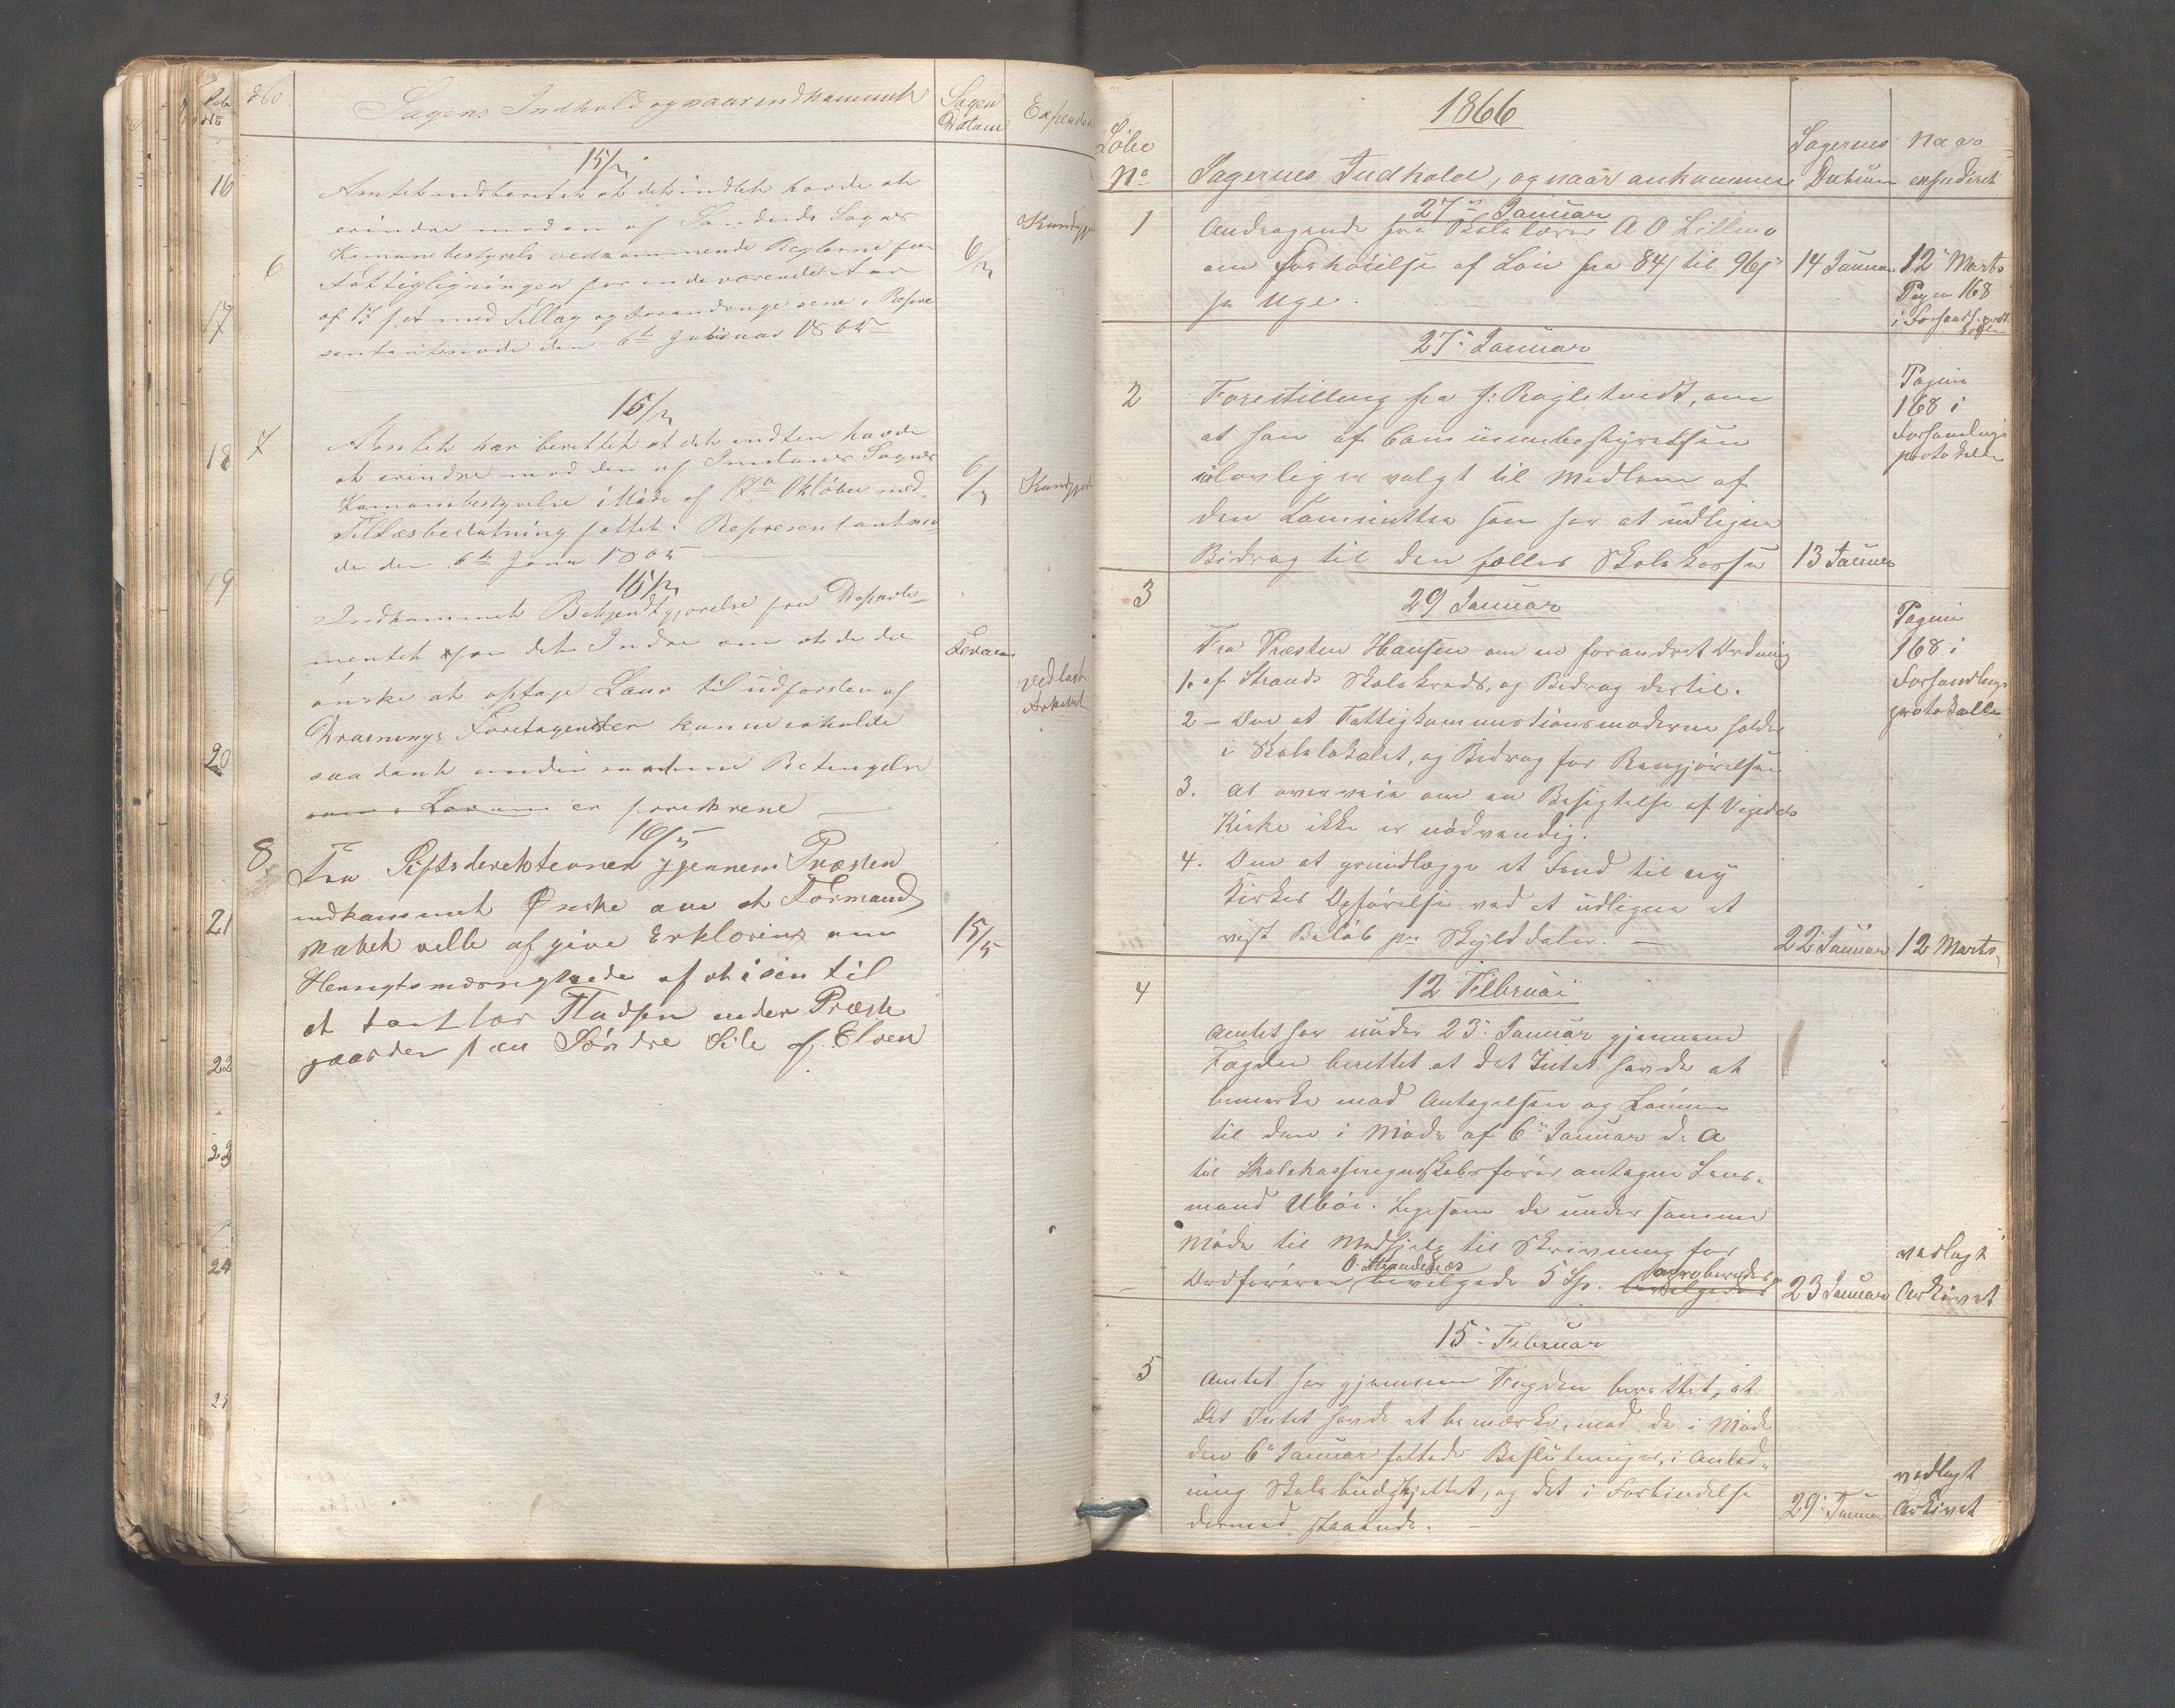 No
Sagens Indhold og naar indkommet
Sagen
Datum
Expeder
15/2
6
Amtet indberettet at det indtet havde at
erindre mod den af Sandeids Sogns
Komunebestyrels vedkommende Reglerne for
Fattigligningen for indeværende Aar
af 17 med Tillæg og forandringerne i Repre
sentantmøde den 6te Januar 1865
6/2
Kundgjort
15/2
7
Amtet har berettet at det indten havde
at erindre mod den af Imslands Sogns
Komunebestyrelse i Møde af 17de Oktober med
Tillægsbeslutning fattet i Representantmø
de den 6te Janu 1865
6/2
Kundgjort
15/2
Indkommet Bekjendtgjørelse fra Departe-
mentet for det Indre om at de der
ønske at optage Laan til udførslen af
Drænings Foretagender kunne erholde
saadant under samme Betingelse
som Loven er foreskrene
vedlagt
Arkivet
16/5
8
Fra Stiftsderektionen gjennem Præsten
indkommet Ønske om at Formand
skabet velle afgive Erklæring om
at Plads under Præste
gaarden paa Søndre Side af Elven
15/5
16
17
18
19
20
21
22
23
24
1866
Løbe
No
Sagernes Indhold, og naar ankommen
Sagernes
Datum
Naar
expederet
27de Januar
1
Andragende fra Skolelærer A O Lillemo
om Forhøielse af Løn fra 84 s til 96 s
pr Uge.
14 Januar
12 Marts
Pagina 168
i Forhandl. prot
kollen
27de Januar
2
Forestilling fra J: Røgletvedt, om
at han af Communebestyrelsen
ulovlig er valgt til Medlem af
den Commitee som har at udligne
Bidrag til den fælles Skolekasse
13 Januar
Pagina
168 i
Forhandlings
protokollen
3
29 Januar
Fra Præsten Hansen om en forandret Ordning
1. af Strands Skolekreds, og Bidrag dertil.
2 - Om at Fattigkommissionsmøderne holdes
i Skolelokalet, og Bidrag for Rengjørelsen
3. At overveie om en Besigtelse af Vigedals
Kirke ikke er nødvendig.
4. Om at grundlægge et Fond til ny
Kirkes Opførelse ved at udligne et
vist Beløb pr: Skylddaler. -
22 Januar
12 Marts
Pagina
168 i
Forhandlings
protokollen
4
12 Februar
Amtet har under 23. Januar gjennem
Fogden berettet at det Intet havde at
bemærke mod Antagelsen og Lønnen
til den i Møde af 6 Januar d: A
til Skolekasseregnskabsfører antagne Lens-
mand Ubøe. Ligesom de under samme
Møde til Medhjelp til Skrivning for
Ordføreren O. Strandenæs bevilgede 5 Sp. approberedes bevilgedes
23 Januar
vedlagt
Arkivet
15 Februar
5
Amtet har gjennem Fogden berettet, at
det Intet havde at bemærke, mod de i Møde
den 6 Januar fattede Beslutninger, i Anled-
ning Skolebudgjettet, og det i Forbindelse
dermed staaende. -
29 Januar
vedlagt
Arkivet